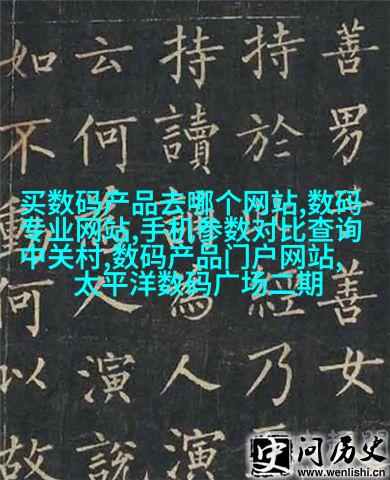 买数码产品去哪个网站,数码
专业网站,手机参数对比查询
中关村,数码产品门户网站,
太平洋数码广场二期
善男子善女
持於經乃
持讀為人演
云何演說
如不動何以故
史问历史
www.wenlishi.cn